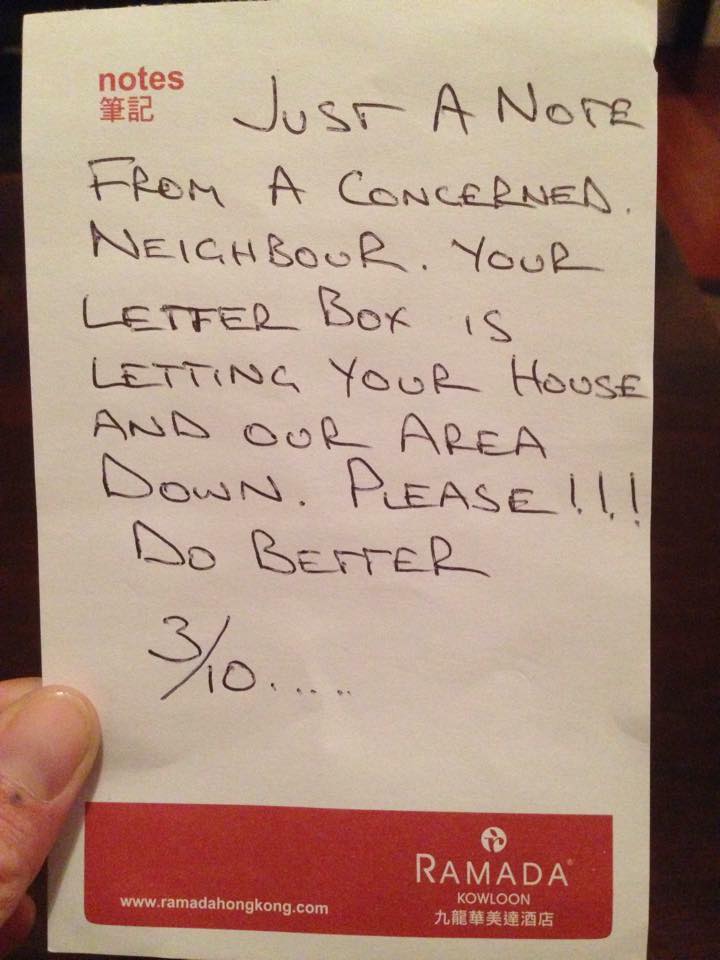 notes
筆記
JUST A NOTE
FROM A CONCERNED.
NEIGHBOUR. YOUR
LETTER BOX IS
LETTING YOUR HOUSE
AND OUR AREA
DOWN. PLEASE!!!
DO BETTER
3/10.....
RAMADA®
KOWLOON
www.ramadahongkong.com
九龍華美達酒店